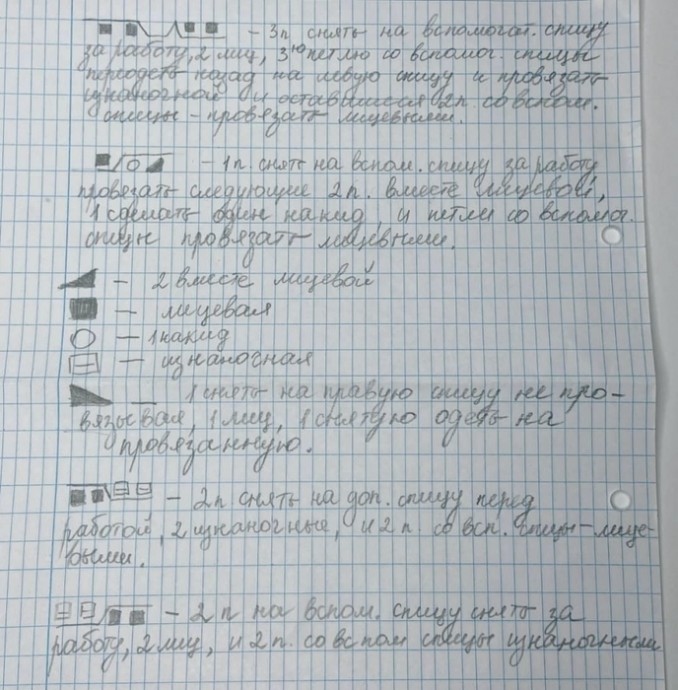 - 3п снять на вспомогат. спицу
за работу, 2 лиц, 3юпетлю со вспомог. спицы
переодеть назад на левую спицу и провязать
изнаночной и оставшиеся 2п. со вспом.
спицы - провязать лицевыми.
- 1п. снять на вспом. спицу за работу
провязать следующие 2п. вместе лицевой,
1 сделать один накид, и петли со вспомог.
спицы провязать лицевыми.
- 2 вместе лицевой
- лицевая
- 1накид
- изнаночная
- 1 снять на правую спицу не про-
вязывая, 1 лиц, 1 снятую одеть на
провязанную.
- 2п снять на доп. спицу перед
работой, 2 изнаночные, и 2 п. со всп. спицы-лице-
выми.
- 2п на вспом. спицу снять за
работу, 2лиц, и 2п. со вспом спицы изнаночными